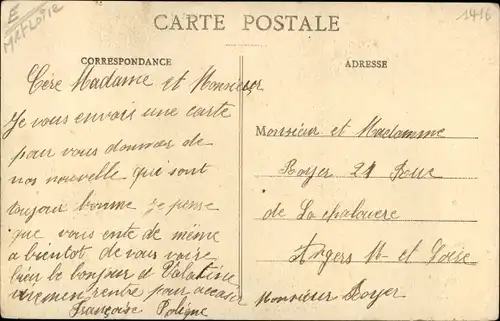 E
MAFLOTTE
1416
CARTE POSTALE
CORRESPONDANCE
ADRESSE
Cère Madame et Monsieur
Je vous envois une carte
pour vous donner de
nos nouvelle qui sont
toujour bonne je pense
que vous ente de même
a bientot de vous voire
bien le bonjour a
rentre pour
Françoise Poligne
Monsieur et Madamme
Royer 21 Rue
de La chalouere
Angers M- et Loire
Monsieur Royer